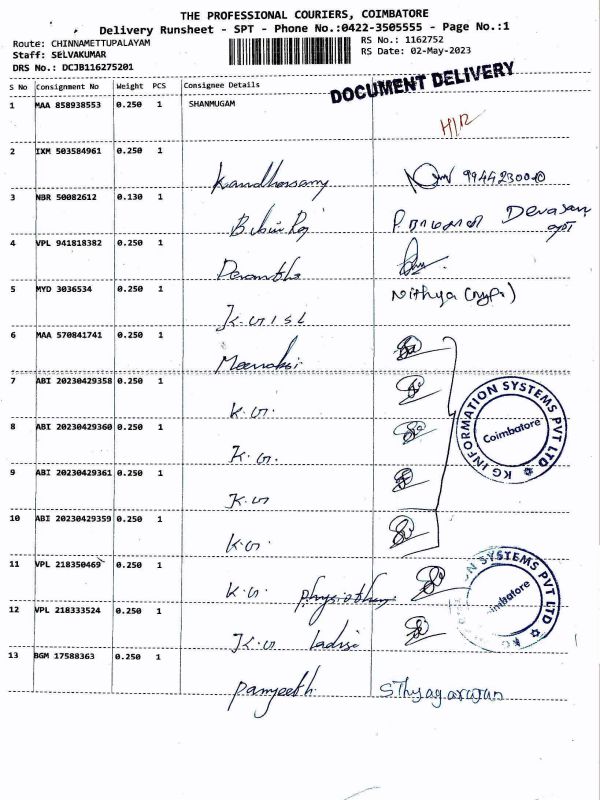 THE PROFESSIONAL COURIERS, COIMBATORE
Delivery Runsheet - SPT - Phone No.:0422-3505555 - Page No.:1
Route: CHINNAMETTUPALAYAM
Staff: SELVAKUMAR
DRS No.: DCJB116275201
RS No.: 1162752
RS Date: 02-May-2023
S No Consignment No Weight PCS Consignee Details
DOCUMENT DELIVERY
1 MAA 858938553 0.250 1 SHANMUGAM
2 IXM 503584961 0.250 1
Kandhasamy 9944230040
3 NBR 50082612 0.130 1
4 VPL 941818382 0.250 1
5 MYD 3036534 0.250 1
Nithya
6 MAA 570841741 0.250 1
Meenaksi
7 ABI 20230429358 0.250 1
8 ABI 20230429360 0.250 1
9 ABI 20230429361 0.250 1
10 ABI 20230429359 0.250 1
KG INFORMATION SYSTEMS PVT LTD
Coimbatore
11 VPL 218350469 0.250 1
12 VPL 218333524 0.250 1
ON SYSTEMS PVT LTD
KG
imbatore
13 BGM 17588363 0.250 1
Ranjeeth SThyagarajan